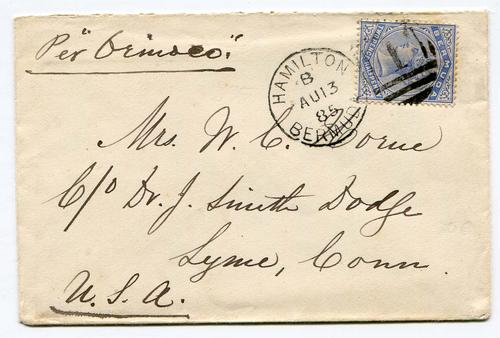 Per "Orinoco".
HAMILTON
B
AU 13
85
BERMUDA
BERMUDA
Mrs. W. C. Horne
C/o Dr. J. Smith Dodge
Lyme, Conn.
U.S.A.